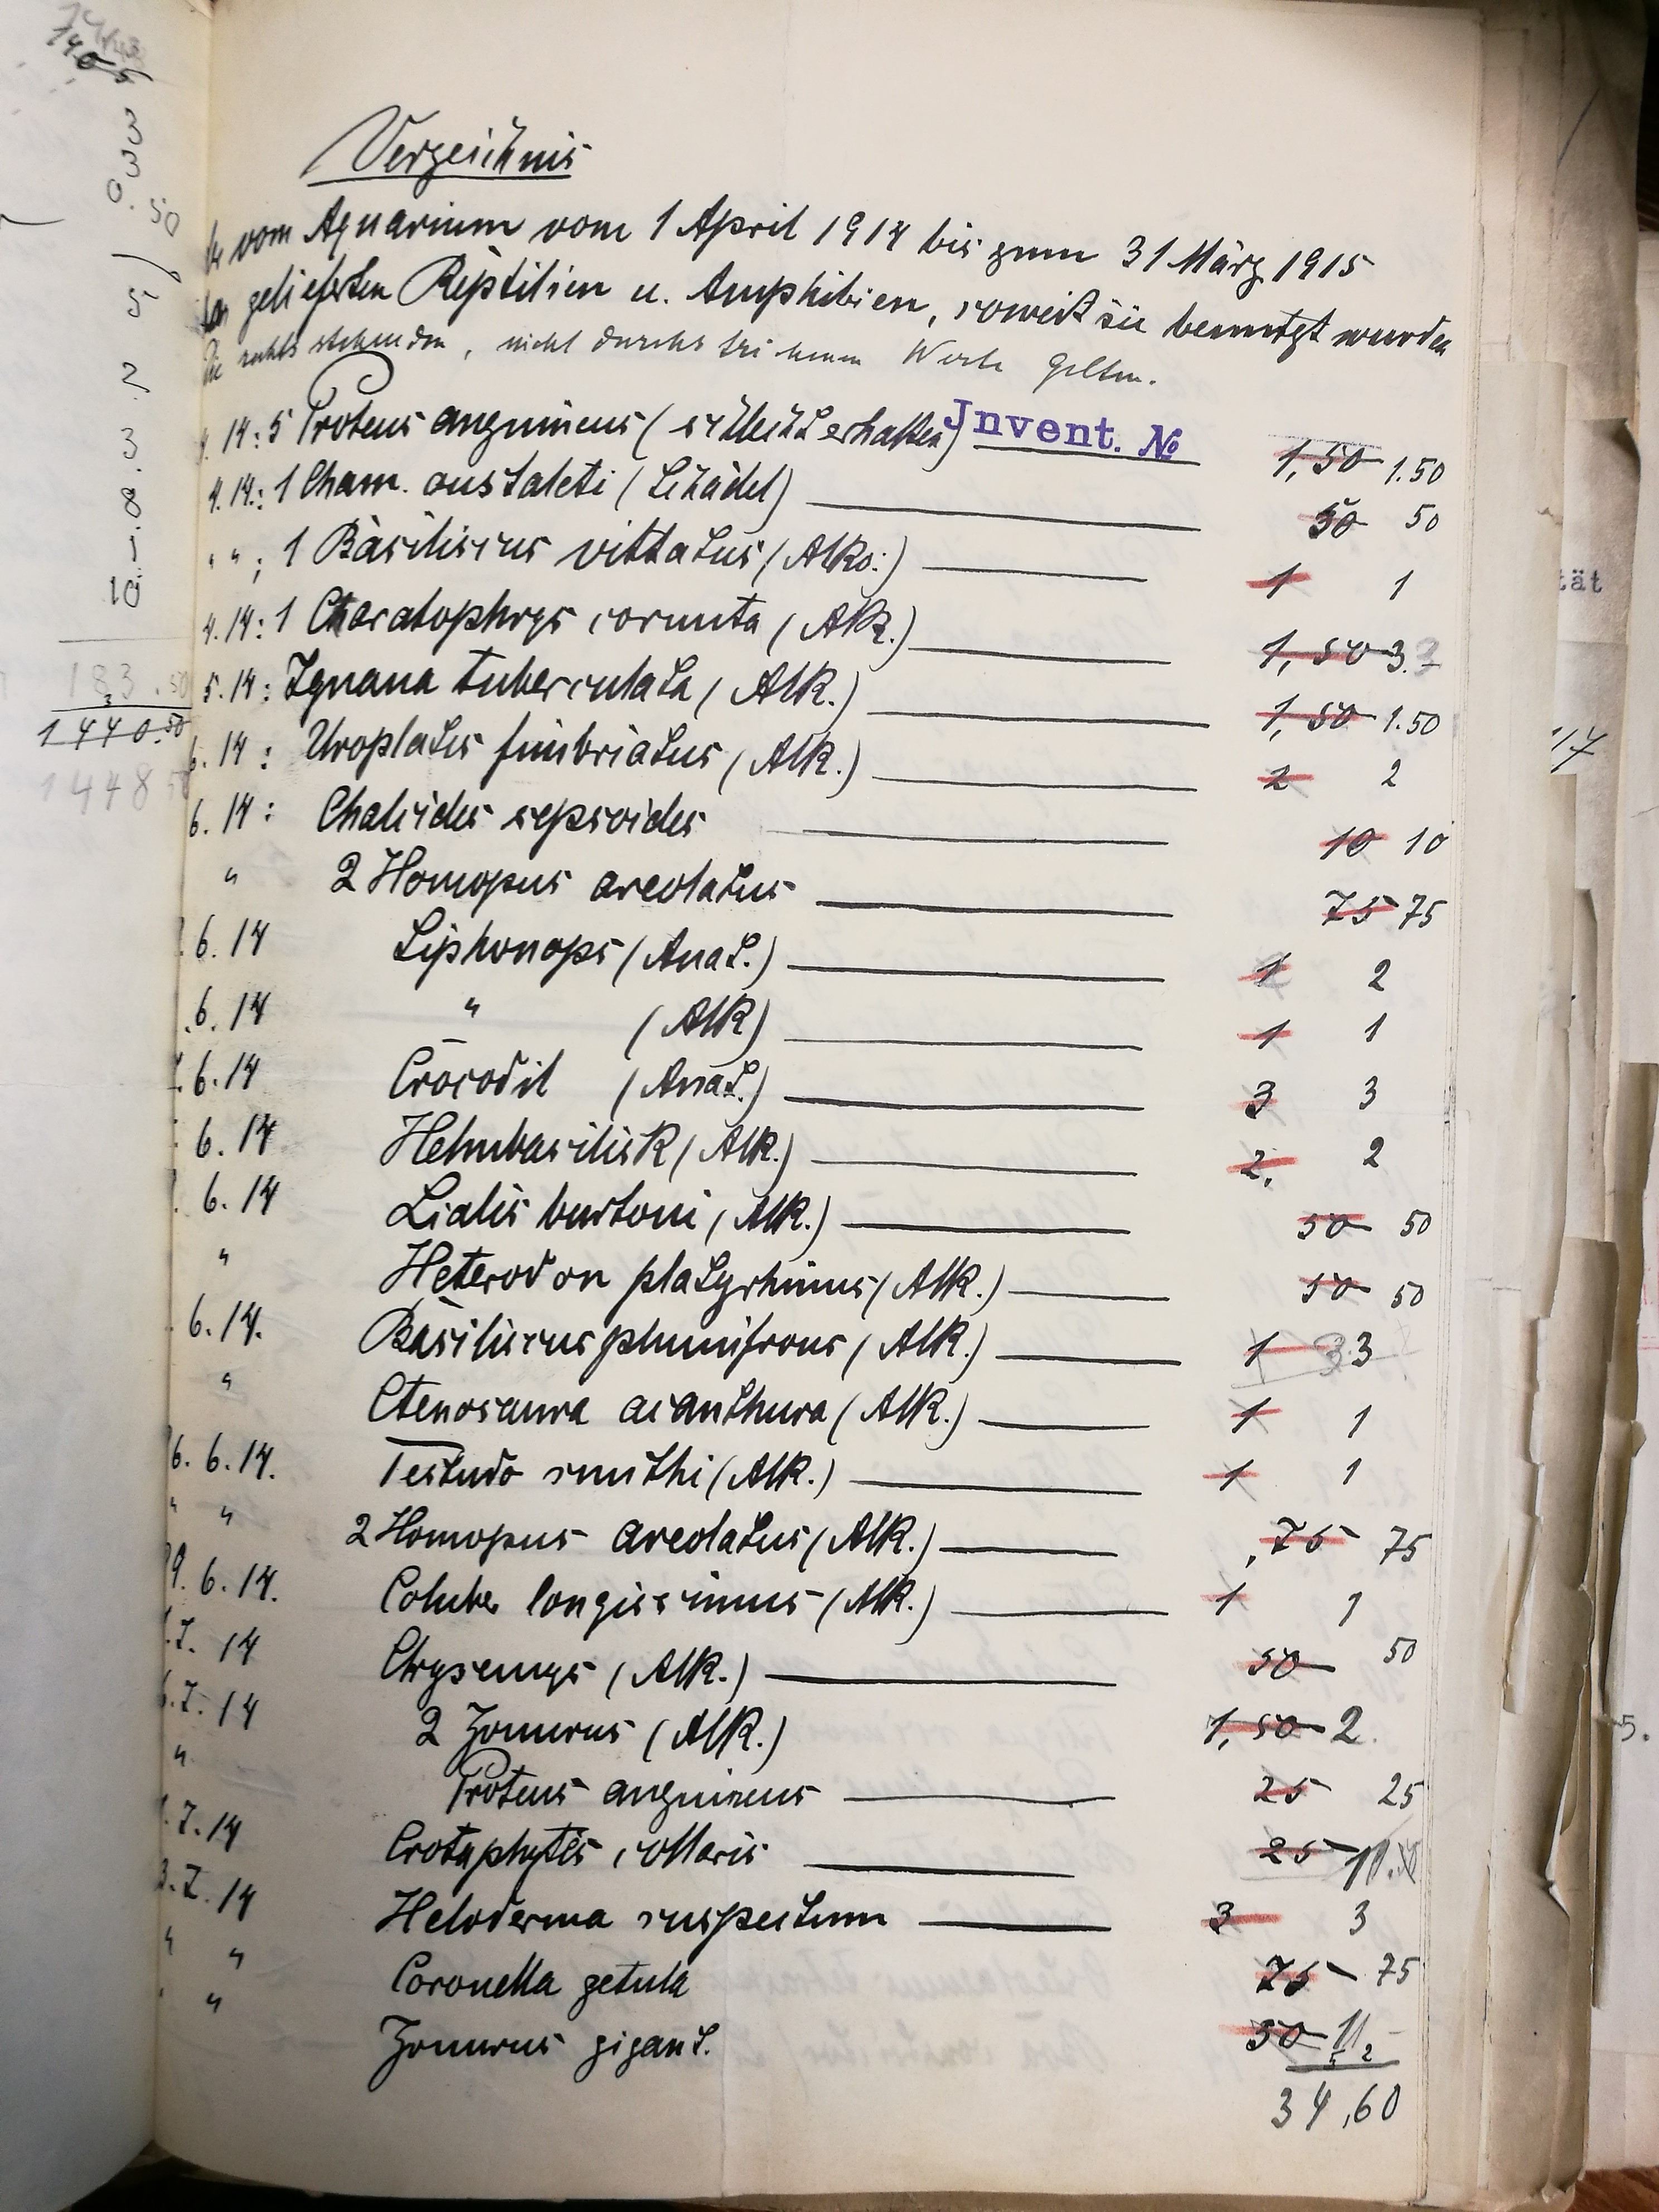 Verzeichnis
vom Aquarium vom 1 April 1914 bis zum 31 März 1915
gelieferten Reptilien u. Amphibien, soweit sie benutzt wurden
Die rechts stehenden, nicht durchstrichenen Werte gelten.
4. 14: 5 Proteus anguineus (schlecht erhalten) Invent. № 1,50 1.50
4. 14.: 1 Cham. oustaleti (Schädel) 50 50
" " ; 1 Basiliscus vittatus (Alko.) 1 1
4. 14: 1 Ceratophrys cornuta (Alk.) 1,50 3.
5. 14: Iguana tuberculata (Alk.) 1,50 1.50
6. 14: Uroplates fimbriatus (Alk.) 2 2
6. 14: Chalcides sepsoides 10 10
" 2 Homopus areolatus 75 75
6. 14 Siphonops (Anat.) 1 2
6. 14 " (Alk) 1 1
6. 14 Crocodil (Anat.) 3 3
6. 14 Helmbasilisk (Alk.) 2. 2
6. 14 Lialis burtoni (Alk.) 50 50
" Heterodon platyrhinus (Alk.) 50 50
6. 14. Basiliscus plumifrons (Alk.) 1 3
" Ctenosaura acanthura (Alk.) 1 1
6. 6. 14. Testudo smithi (Alk.) 1 1
" " 2 Homopus areolatus (Alk.) ,75 75
9. 6. 14. Coluber longissimus (Alk.) 1 1
7. 14 Chrysemys (Alk.) 50 50
6. 7. 14 2 Zonurus (Alk.) 1,50 2
" Proteus anguineus 25 25
7. 14 Crotaphytes collaris 25
3. 7. 14 Heloderma suspectum 3 3
" " Coronella getula 75 75
" " Zonurus gigant. 50
34,60
1405
3
3
0.50
5
2
3
8
10
183.50
1440.50
1448
tät
17
5.